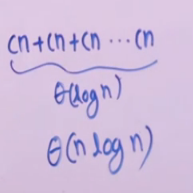 cn+cn+cn ... cn
θ(logn)
θ(n logn)